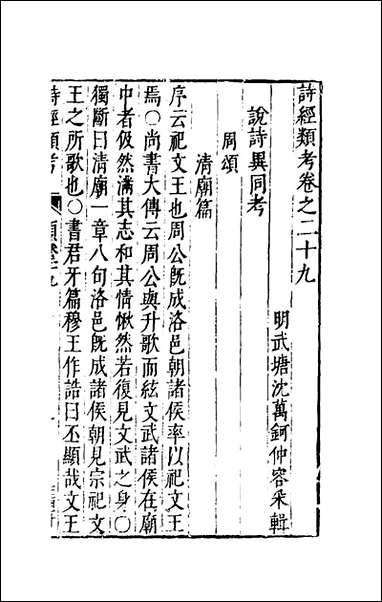 詩經類考卷之二十九
明武塘沈萬鈳仲容采輯
說詩異同考
周頌
清廟篇
序云祀文王也周公既成洛邑朝諸侯率以祀文王
焉○尚書大傳云周公與升歌而絃文武諸侯在廟
中者伋然滿其志和其情愀然若復見文武之身○
獨斷曰清廟一章八句洛邑既成諸侯朝見宗祀文
王之所歌也○書君牙篇穆王作誥曰丕顯哉文王
詩經類考